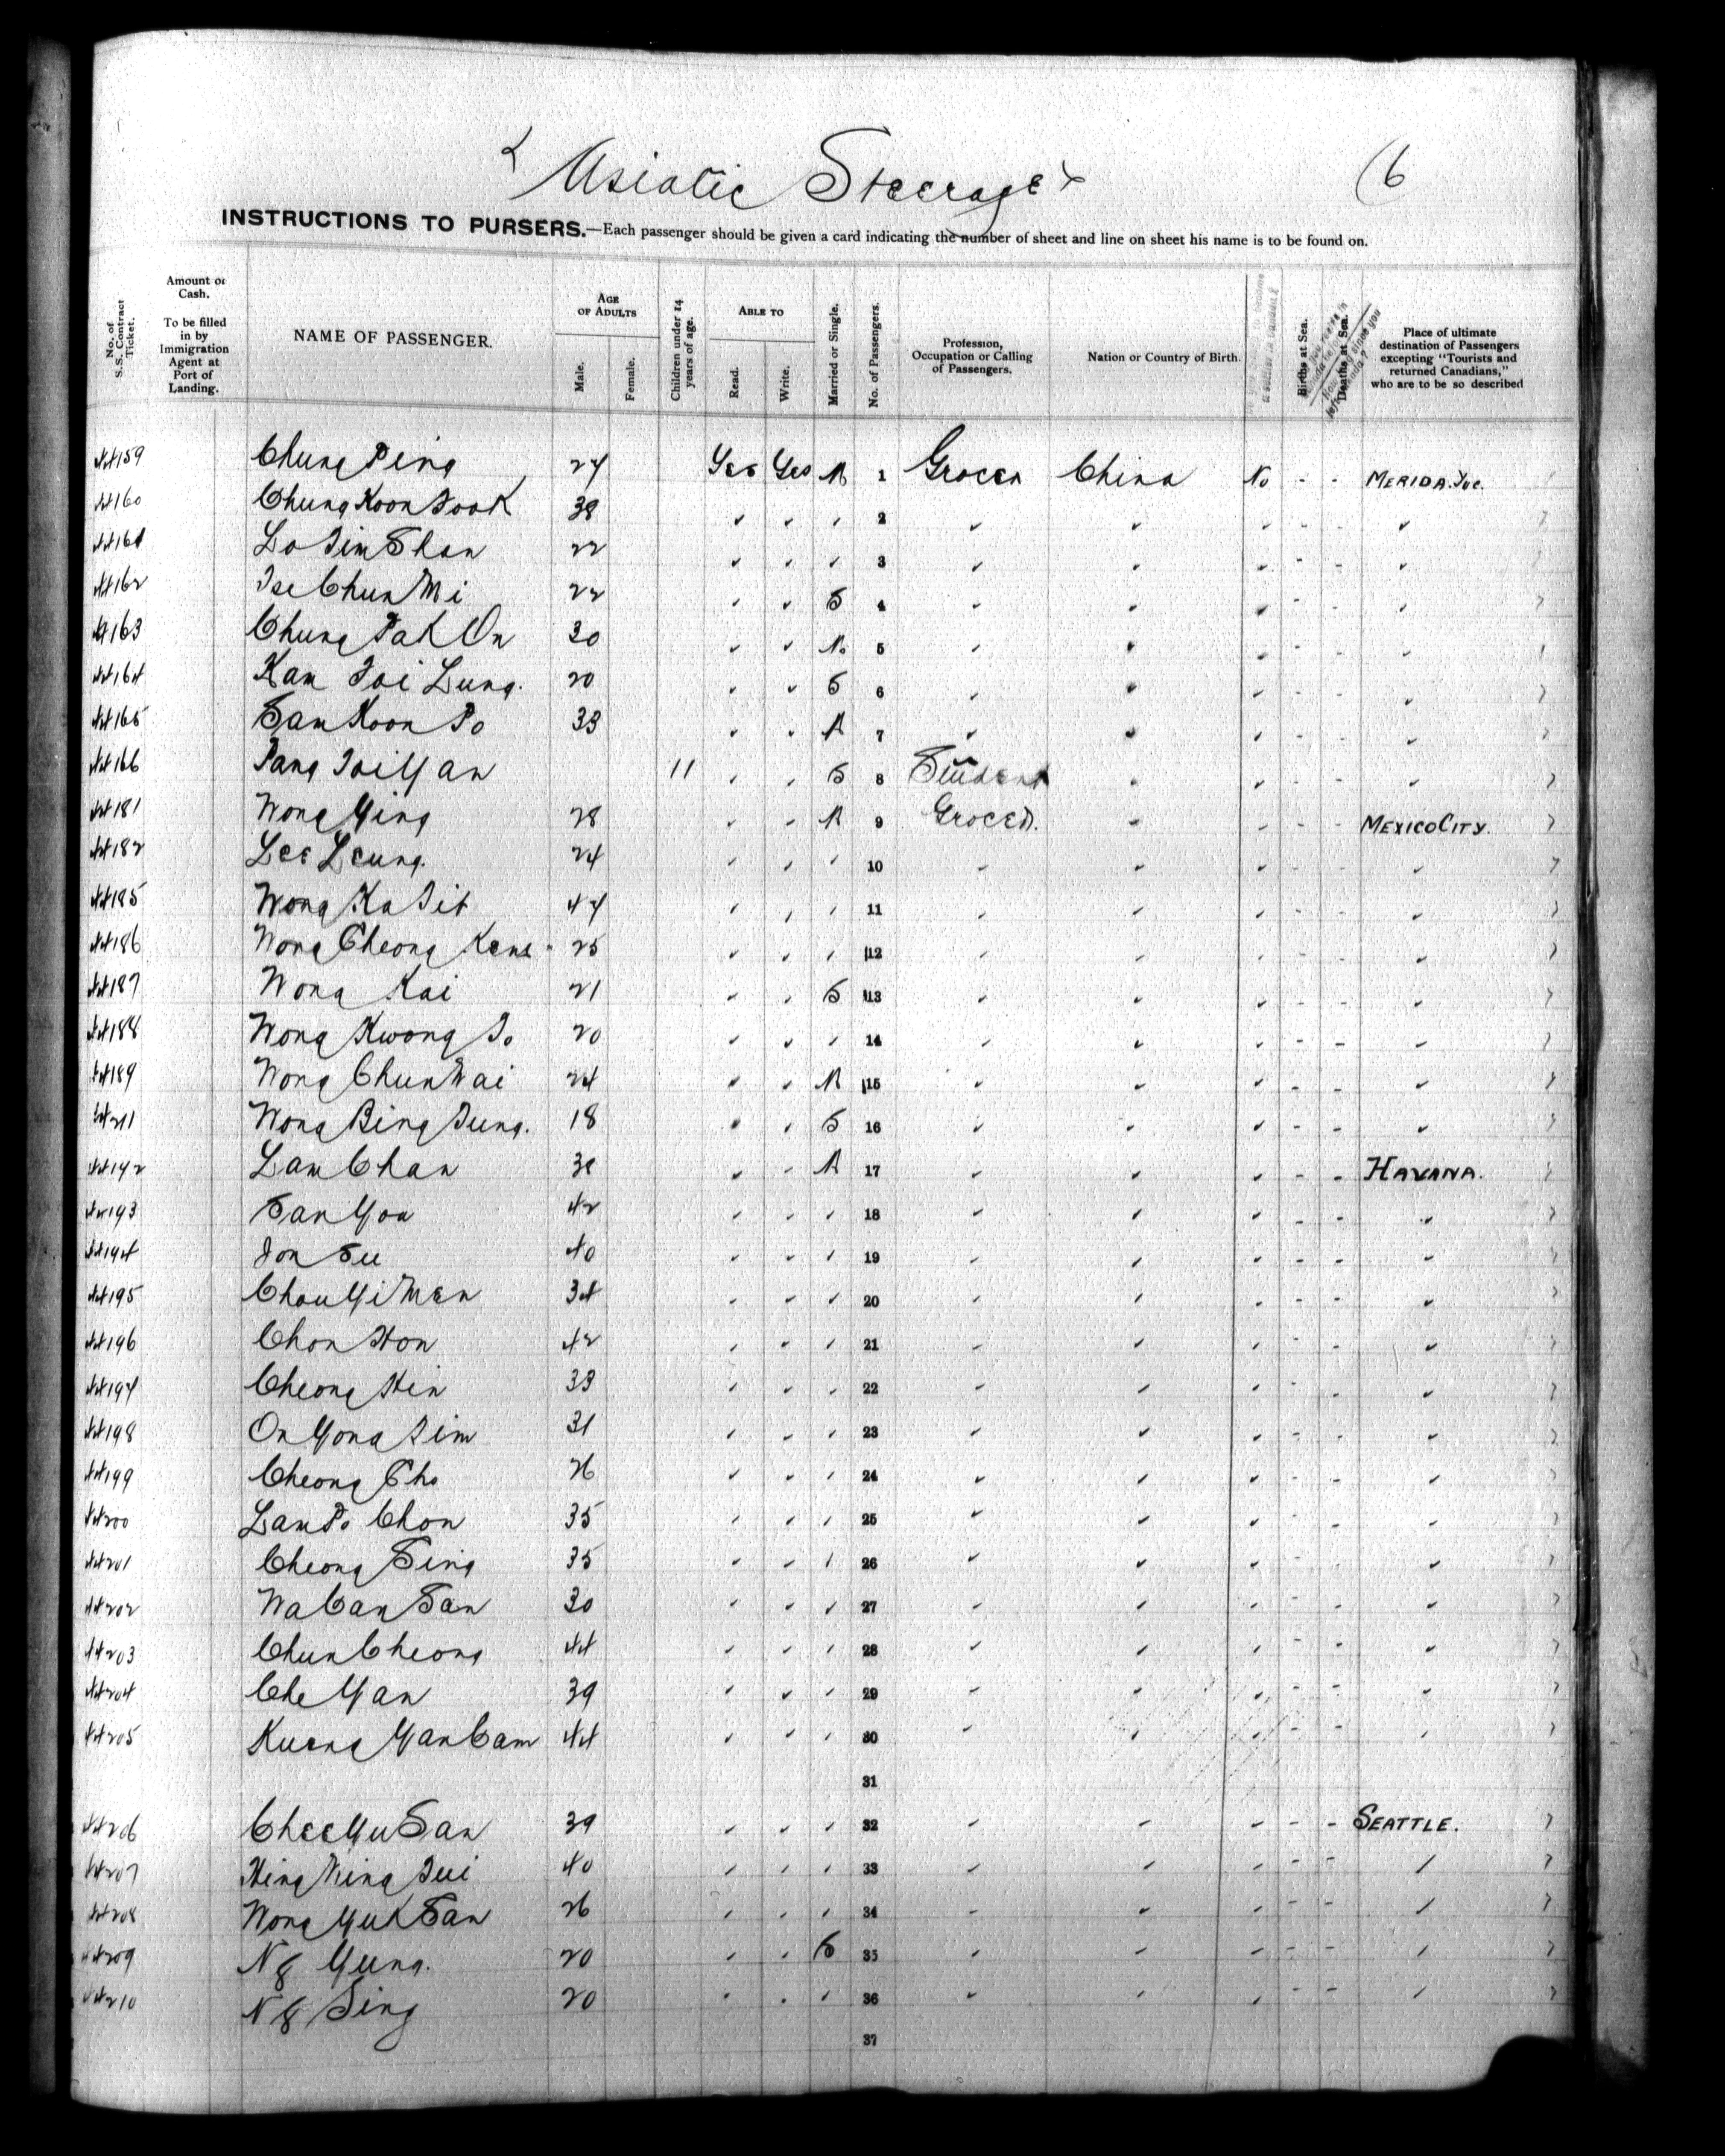 Asiatic Steerage
6
INSTRUCTIONS TO PURSERS.—Each passenger should be given a card indicating the number of sheet and line on sheet his name is to be found on.
No. of S.S. Contract Ticket.
Amount of Cash. To be filled in by Immigration Agent at Port of Landing.
NAME OF PASSENGER.
AGE OF ADULTS
Male.
Female.
Children under 14 years of age.
ABLE TO
Read.
Write.
Married or Single.
No. of Passengers.
Profession, Occupation or Calling of Passengers.
Nation or Country of Birth.
Births at Sea.
Deaths at Sea.
Place of ultimate destination of Passengers excepting "Tourists and returned Canadians," who are to be so described
159 Chung Ping Yes Yes M 1 Grocer China No - - MERIDA. Yuc.
160 Chung Koon Fook 38 2
161 Lo Sim Shan 22 3
162 Tse Chun Mi 22 S 4
163 Chung Pak On 30 M. 5
164 Kam Loi Lung. 20 S 6
165 Sam Koon Po 33 M 7
166 Pang Loi Yan 11 S 8 Student
181 Wong Ying 28 M 9 Grocer. MEXICO CITY.
182 Lee Leung. 24 10
185 Wong Ka 11
186 Wong Cheong 25 12
187 Wong Kai 21 S 13
188 Wong Kwong 20 14
189 Wong Chun Wai 24 M 15
211 Wong Bing 18 S 16
192 Lam Chan M 17 HAVANA.
193 San You 42 18
194 40 19
195 Chou Yi Men 34 20
196 Chon Hon 42 21
197 Cheong Hin 33 22
198 On Yong 31 23
199 Cheong Cho 26 24
200 Lam Po Chon 35 25
201 Cheong Sing 35 26
202 Wa Can San 30 27
203 Chun Cheong 44 28
204 Che Yan 39 29
205 Kueng Yan Cam 44 30
31
206 Chee Yu San 39 32 SEATTLE.
207 Hing Ning 40 33
208 Wong Yuk San 26 34
209 Ng Yung. 20 S 35
210 Ng Sing 20 36
37